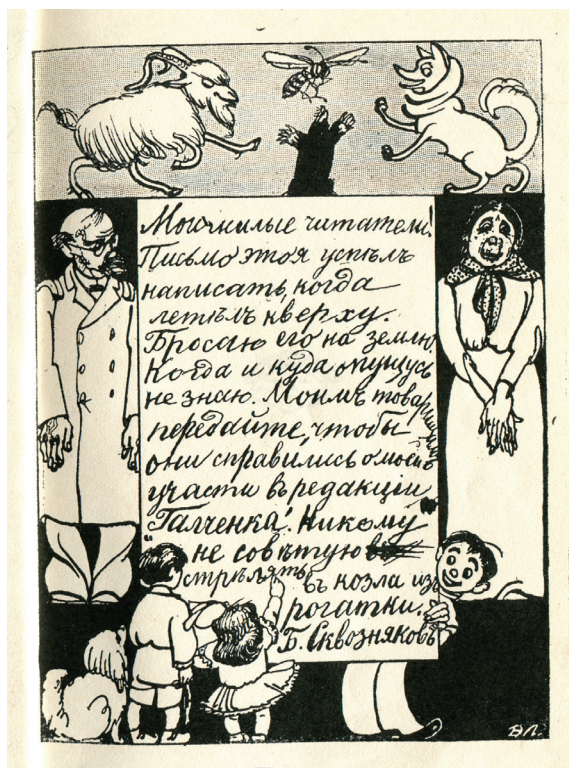 Могожилые читатели!
Письмо это я успѣлъ
написать, когда
летѣлъ кверху.
Бросаю его на землю.
Когда и куда опущусь
не знаю. Моимъ товарищамъ
передайте, чтобы
они справились о моей
участи въ редакціи
"Галченка". Никому
не совѣтую
стрѣлять въ козла изъ
рогатки.
Б. Сквозняковъ
ВЛ.